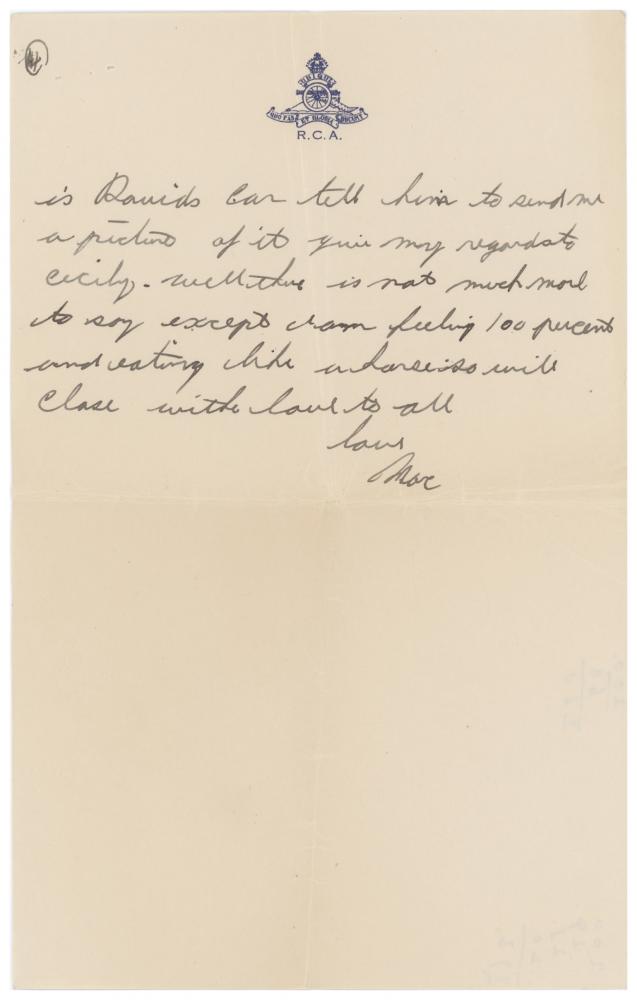 4
UBIQUE
QUO FAS ET GLORIA DUCUNT
R.C.A.
is Davids car tell him to send me
a picture of it give my regards to
cecily. well there is not much more
to say except I am feeling 100 percent
and eating like a horse. so will
close with love to all
love